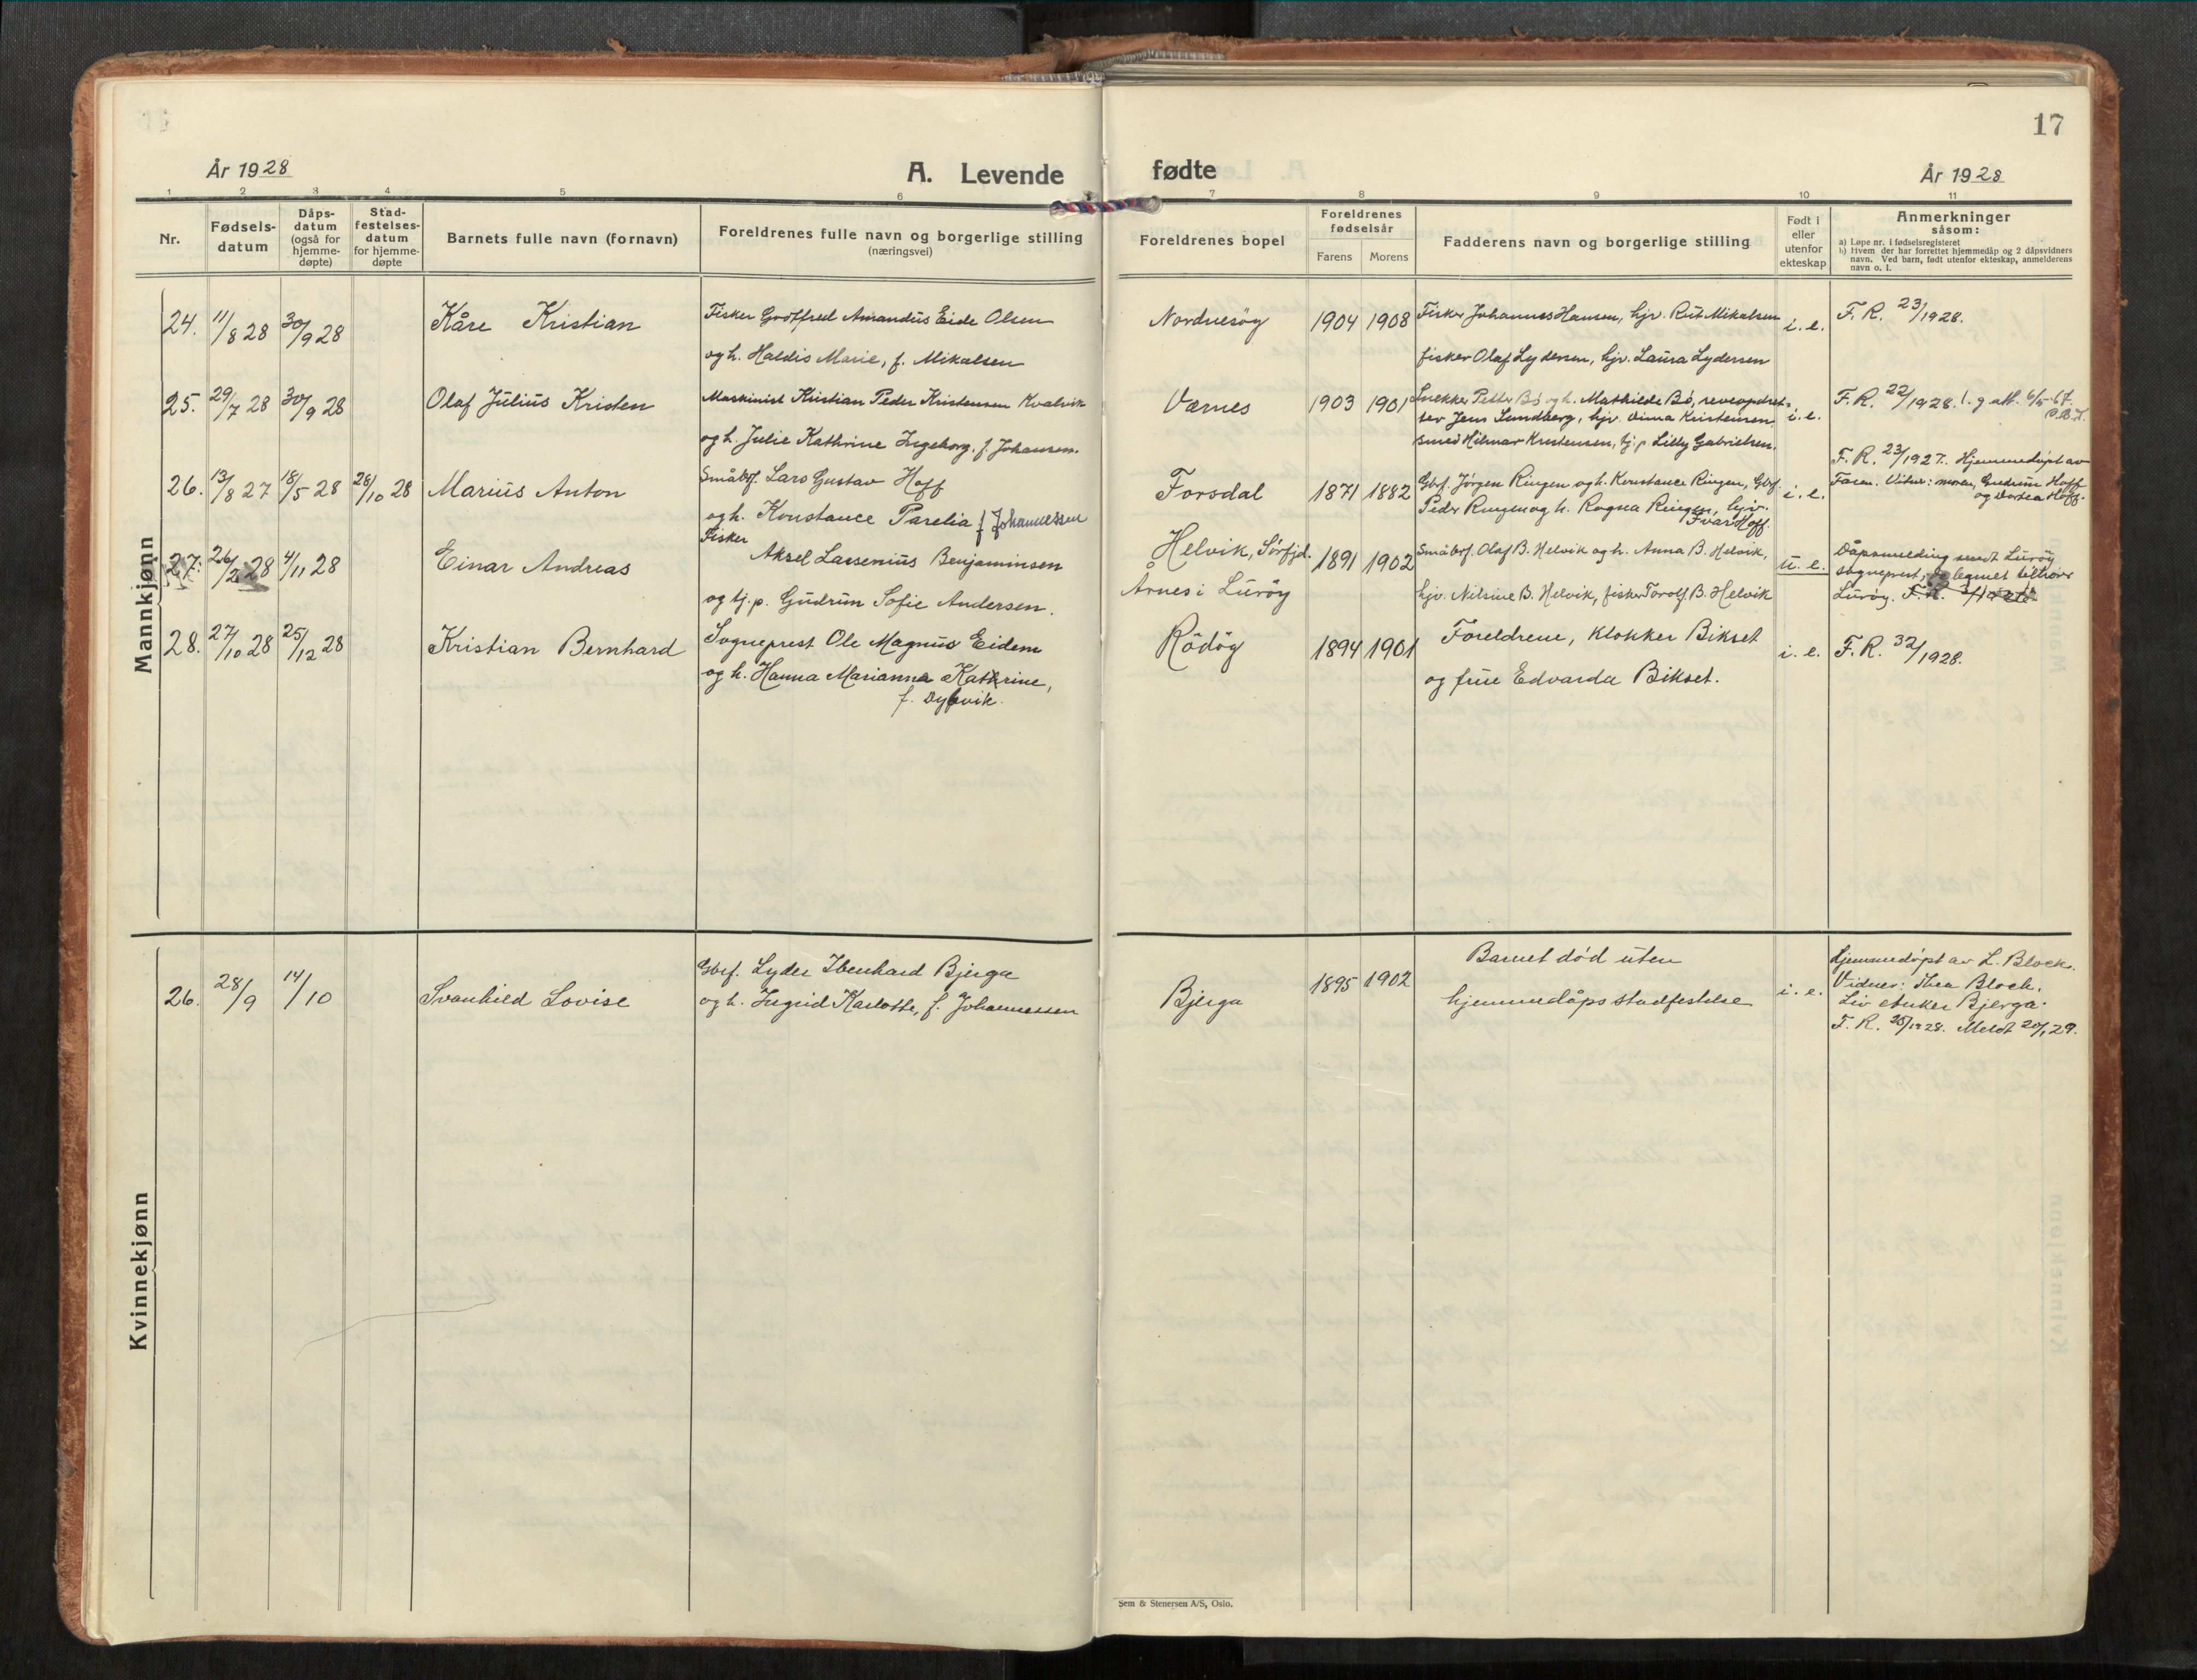 17
År 1928
A. Levende
fødte
År 1928
1 2 3 4 5 6 7 8 9 10 11
Nr.
Fødsels-
datum
Dåps-
datum
(også for
hjemme-
døpte)
Stad-
festelses-
datum
for hjemme-
døpte
Barnets fulle navn (fornavn)
Foreldrenes fulle navn og borgerlige stilling
(næringsvei)
Foreldrenes bopel
Foreldrenes
fødselsår
Farens
Morens
Fadderens navn og borgerlige stilling
Født i
eller
utenfor
ekteskap
Anmerkninger
såsom:
a) Løpe nr. i fødselsregisteret
b) Hvem der har forrettet hjemmedåp og 2 dåpsvidners
navn. Ved barn, født utenfor ekteskap, anmelderens
navn o. l.
Mannkjønn
24. 11/8 28 30/9 28 Kåre Kristian
Fisker Amandus Eide Olsen
og h. Haldis Marie, f. Mikalsen
Nordnesöy 1904 1908
Fisker Johannes Hansen, hjv. Rut Mikalsen
fisker Olaf Lydersen, hjv. Laura Lydersen
i. e.
F. R. 23/1928.
25. 29/7 28 30/9 28 Olaf Julius Kristen
Maskinist Kristian Peder Kristensen Kvalvik
og h. Julie Kathrine Ingeborg, f. Johansen.
Værnes 1903 1901
Snekker Petter Bö og h. Mathilde Bö, reveopdret-
ter Jens Sundberg, hjv. Kristensen
smed Hilmar Kristensen, tj. p. Lilly Gabrielsen.
i. e.
F. R. 22/1928. l. g. att. 6/5-67.
26. 13/8 27 18/5 28 28/10 28 Marius Anton
Småbrf. Lars Gustav Hoff
og h. Konstance Parelia f Johannessen
Forsdal 1871 1882
Gbrf. Jörgen Ringen og h. Konstance Ringen, Gbrf.
Peder Ringen og h. Ragna Ringen, hjv.
Ivar Hoff.
i. e.
F. R. 23/1927. Hjemmedöpt av
Faren. Vitner: moren, Gudrun Hoff
og Dortea Hoff.
27. 26/2 28 4/11 28 Einar Andreas
Fisker
Aksel Lassenius Benjaminsen
og tj. p. Gudrun Sofie Andersen.
Helvik, Sörfjd.
Årnes i Luröy
1891 1902
Småbrf. Olaf B. Helvik og h. Anna B. Helvik,
hjv. Nilsine B. Helvik, fisker Torolf B. Helvik
u. e.
Dåpsmelding sendt Luröy
sogneprest, da tilhører
Luröy. F. R.
28. 27/10 28 25/12 28 Kristian Bernhard
Sogneprest Ole Magnus Eidem
og h. Hanna Marianna Katrine,
f. Dybvik.
Rödöy 1894 1901
Foreldrene, Klokker Bikset
og frue Edvarda Bikset.
i. e.
F. R. 32/1928.
Kvinnekjønn
26. 28/9 14/10 Svanhild Lovise
Gbrf. Lyder Ibenhard Bjerga
og h. Ingrid Karlotte, f. Johannessen
Bjerga 1895 1902
Barnet död uten
hjemmedåps stadfestelse
i. e.
Hjemmedöpt av L. Block.
Vidner: Thea Block.
Liv Bjerga.
F. R. 26/1928. Meldt 20/1 29.
Sem & Stenersen A/S, Oslo.